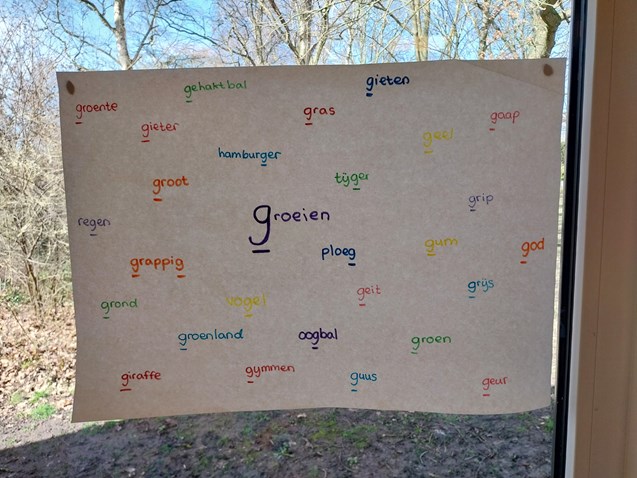 gehaktbal
gieten
groente
gras
gaap
gieter
geel
hamburger
groot
tijger
grip
groeien
regen
ploeg
gum
god
grappig
geit
grijs
grond
vogel
groenland
oogbal
groen
giraffe
gymmen
guus
geur